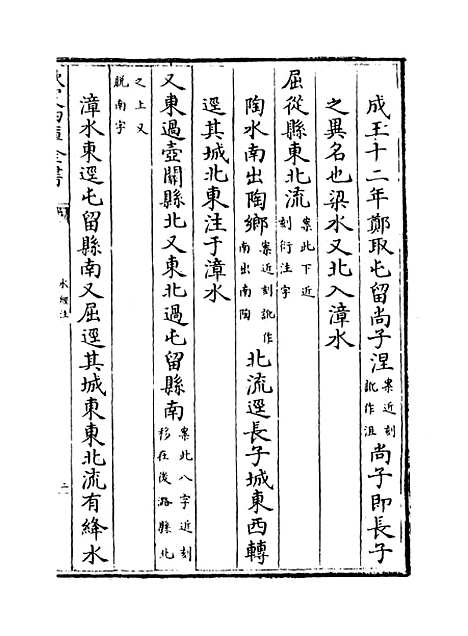 成王十二年鄭取屯留尚子涅案近刻訛作沮尚子即長子
之異名也梁水又北入漳水
屈從縣東北流案此下近刻衍注字
陶水南出陶鄉案近刻訛作南出南陶北流逕長子城東西轉
逕其城北東注于漳水
又東過壺關縣北又東北過屯留縣南案此八字近刻移在後潞縣北
之上又脱南字
漳水東逕屯留縣南又屈逕其城東東北流有絳水
欽定四庫全書
水經注
二